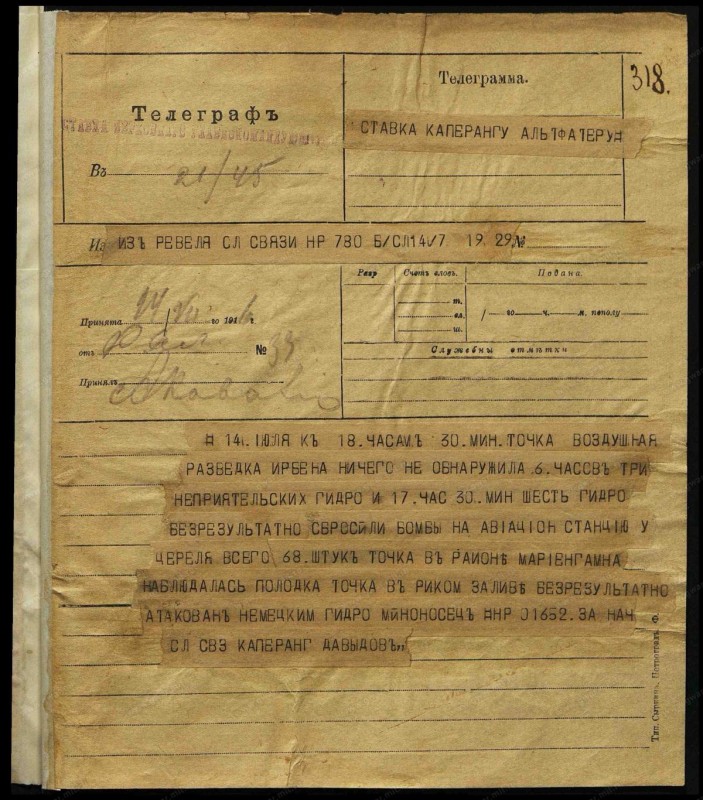 Телеграмма.
318.
Телеграфъ
СТАВКА КАПЕРАНГУ АЛЬТФАТЕРУ¤
Въ
21/45
Из ИЗЪ РЕВЕЛЯ СЛ СВЯЗИ НР 780 Б/СЛ 14/7 19 29 №
Разр Счетъ словъ. Подана.
т.
Принята 14/VII го 1916 г.
ел. /—го—ч.—м. пополу
ш.
отъ № 34
Служебны отмѣтки
Принялъ
¤ 14. ІЮЛЯ КЪ 18. ЧАСАМЪ 30. МИН. ТОЧКА ВОЗДУШНАЯ
РАЗВЕДКА ИРБЕНА НИЧЕГО НЕ ОБНАРУЖИЛА 6. ЧАСОВЪ ТРИ
НЕПРИЯТЕЛЬСКИХ ГИДРО И 17. ЧАС 30. МИН ШЕСТЬ ГИДРО
БЕЗРЕЗУЛЬТАТНО СБРОСИЛИ БОМБЫ НА АВІАЧІОН СТАНЧІЮ У
ЧЕРЕЛЯ ВСЕГО 68. ШТУК ТОЧКА ВЪ РАЙОНѢ МАРІЕНГАМНА
НАБЛЮДАЛАСЬ ПОЛОДКА ТОЧКА ВЪ РИКОМ ЗАЛИВѢ БЕЗРЕЗУЛЬТАТНО
АТАКОВАНЪ НЕМЕЦКИМ ГИДРО МИНОНОСЕЦЬ ¤НР 01652. ЗА НАЧ
СЛ СВЗ КАПЕРАНГ ДАВЫДОВЪ„
Тип. Сыркинъ, Петроградъ. Ф.